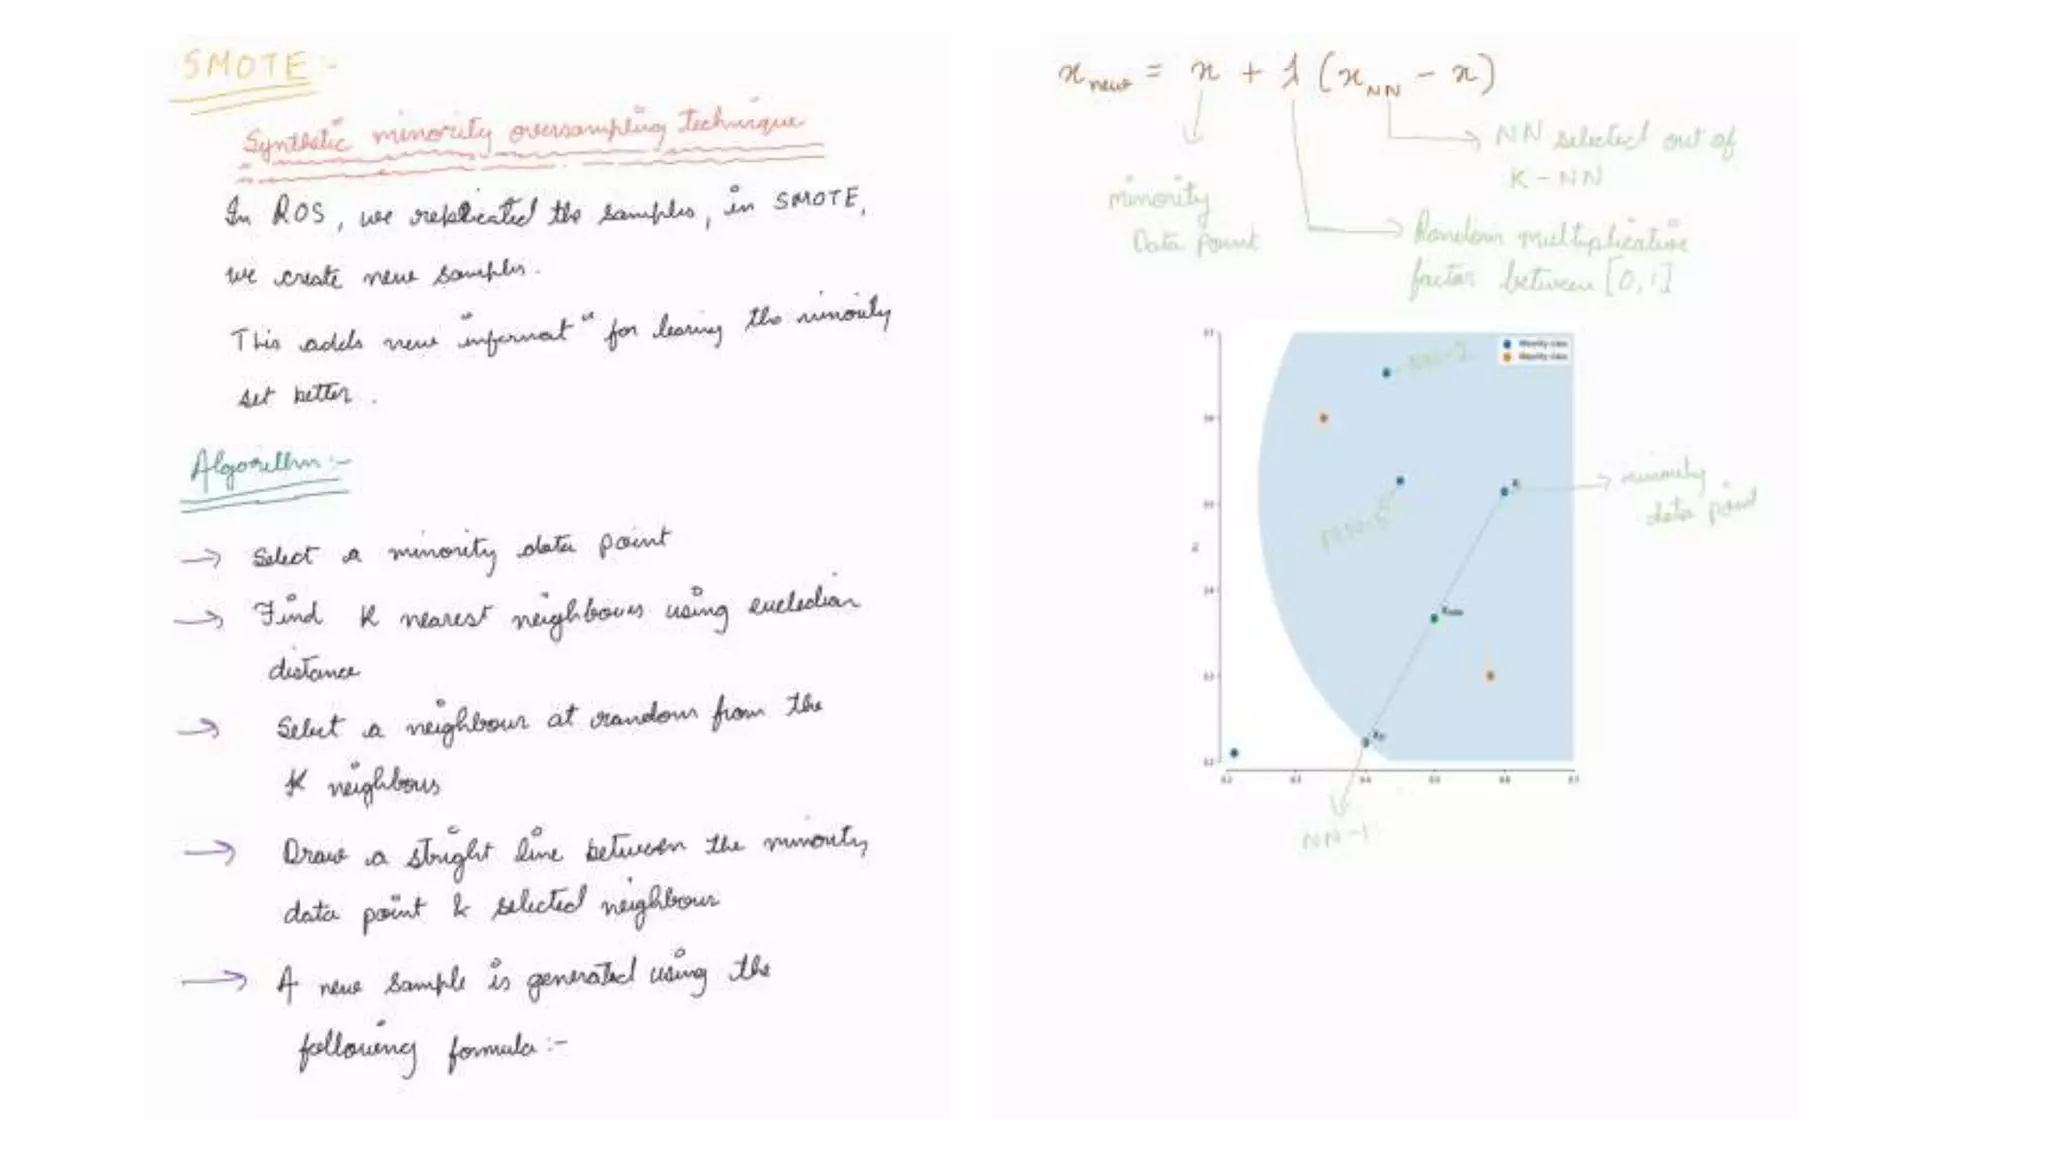 SMOTE :-
Synthetic minority oversampling technique
In ROS, we replicated the samples, in SMOTE,
we create new samples.
This adds new "informat" for learing the minority
set better.
Algorithm :-
→ Select a minority data point
→ Find K nearest neighbours using eucledian
distance
→ Select a neighbour at random from the
K neighbous
→ Draw a stright line between the minority
data point & selected neighbour
→ A new sample is generated using the
following formula :-
x_new = x + λ (x_NN - x)
NN selected out of
K-NN
minority
Data point
Random multiplicative
factor between [0,1]
Minority class
Majority class
NN-2
minority
data point
NN-1